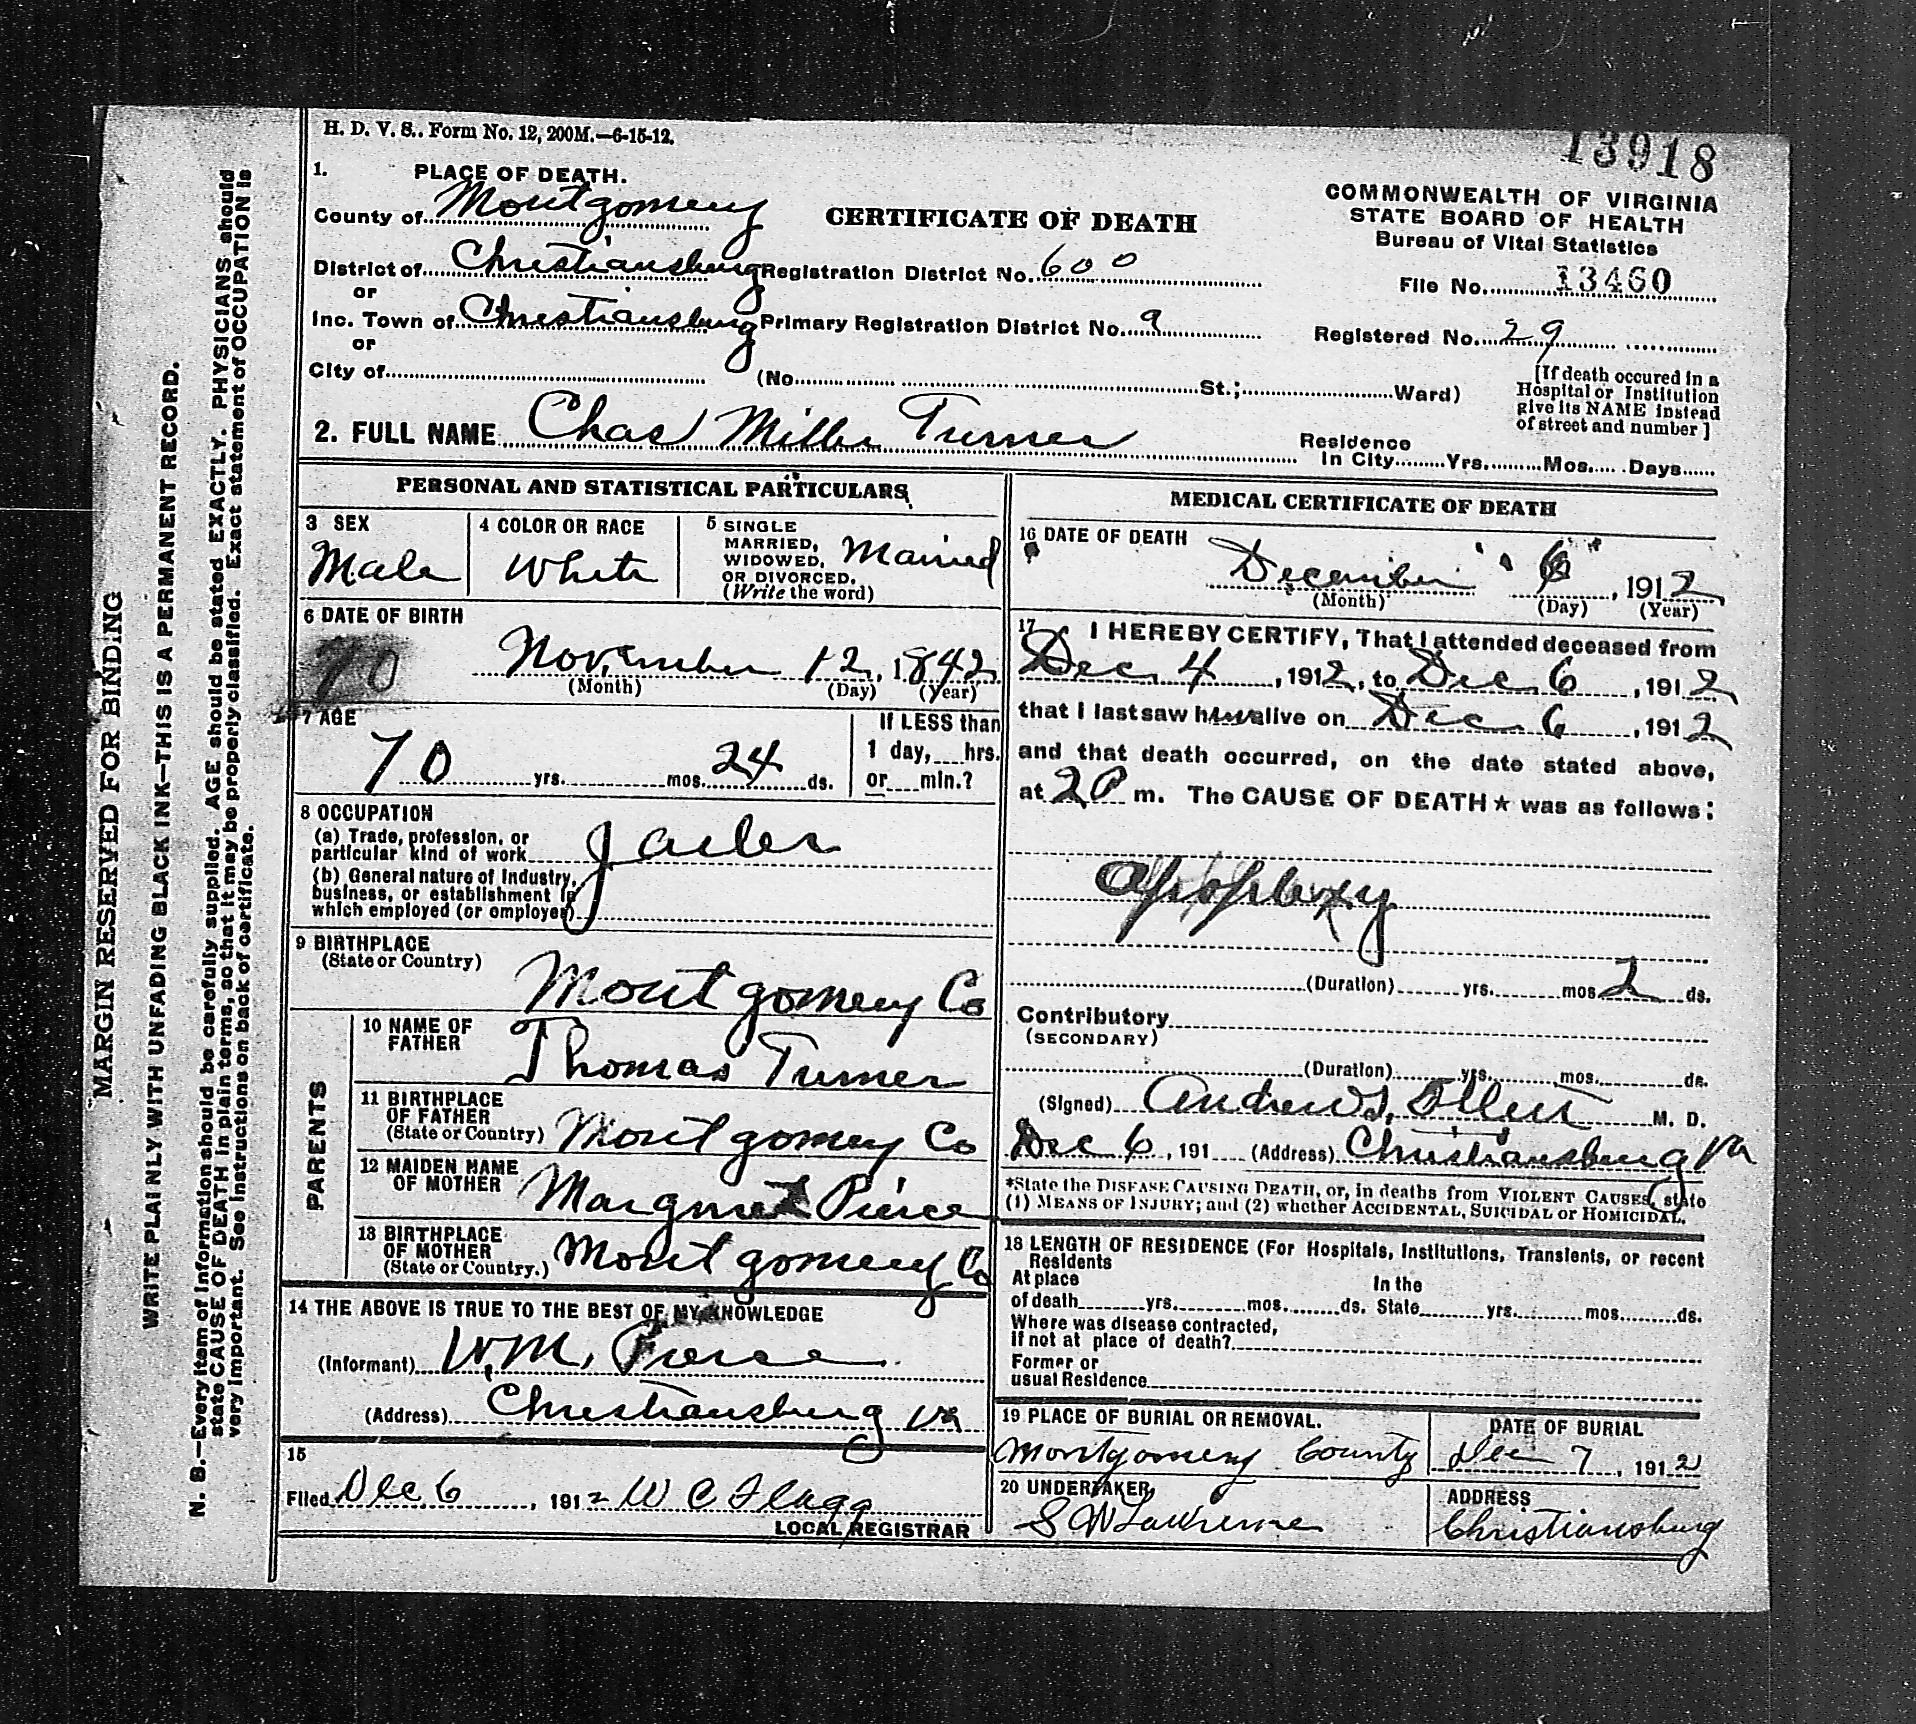 H. D. V. S.. Form No. 12, 200M.—6-15-12.
13918
1. PLACE OF DEATH.
County of Montgomery
District of Christiansburg
or
Inc. Town of Christiansburg
or
City of
CERTIFICATE OF DEATH
Registration District No. 600
Primary Registration District No. 9
(No. St.; Ward)
COMMONWEALTH OF VIRGINIA
STATE BOARD OF HEALTH
Bureau of Vital Statistics
File No. 13460
Registered No. 29
[If death occured in a
Hospital or Institution
give its NAME instead
of street and number ]
2. FULL NAME Chas Miller Turner
Residence
In City Yrs. Mos. Days
PERSONAL AND STATISTICAL PARTICULARS
3 SEX
Male
4 COLOR OR RACE
White
5 SINGLE
MARRIED,
WIDOWED,
OR DIVORCED.
(Write the word)
Married
6 DATE OF BIRTH
70
November 12, 1842
(Month) (Day) (Year)
7 AGE
70 yrs. mos. 24 ds.
If LESS than
1 day, hrs.
or min.?
8 OCCUPATION
(a) Trade, profession, or
particular kind of work Jailer
(b) General nature of Industry,
business, or establishment in
which employed (or employer)
9 BIRTHPLACE
(State or Country)
Montgomery Co
PARENTS
10 NAME OF
FATHER
Thomas Turner
11 BIRTHPLACE
OF FATHER
(State or Country) Montgomery Co
12 MAIDEN NAME
OF MOTHER
Margaret Pierce
13 BIRTHPLACE
OF MOTHER
(State or Country.) Montgomery Co
14 THE ABOVE IS TRUE TO THE BEST OF MY KNOWLEDGE
(Informant) W.M. Pierce
(Address) Christiansburg Va
15
Filed Dec 6, 1912 W C Flagg
LOCAL REGISTRAR
MEDICAL CERTIFICATE OF DEATH
16 DATE OF DEATH
December 6, 1912
(Month) (Day) (Year)
17 I HEREBY CERTIFY, That I attended deceased from
Dec. 4, 1912, to Dec 6, 1912
that I last saw him alive on Dec. 6, 1912
and that death occurred, on the date stated above,
at 2 P m. The CAUSE OF DEATH * was as follows:
Apoplexy
(Duration) yrs. mos 2 ds.
Contributory
(SECONDARY)
(Duration) yrs. mos. ds.
(Signed) M. D.
Dec 6, 191 (Address) Christiansburg Va
*State the DISEASE CAUSING DEATH, or, in deaths from VIOLENT CAUSES, state
(1) MEANS OF INJURY; and (2) whether ACCIDENTAL, SUICIDAL or HOMICIDAL.
18 LENGTH OF RESIDENCE (For Hospitals, Institutions, Transients, or recent
Residents
At place In the
of death yrs. mos. ds. State yrs. mos. ds.
Where was disease contracted,
If not at place of death?
Former or
usual Residence
19 PLACE OF BURIAL OR REMOVAL.
Montgomery County
DATE OF BURIAL
Dec 7, 1912
20 UNDERTAKER
S W Lawrence
ADDRESS
Christiansburg
MARGIN RESERVED FOR BINDING
WRITE PLAINLY WITH UNFADING BLACK INK—THIS IS A PERMANENT RECORD.
N. B.—Every item of Information should be carefully supplied. AGE should be stated EXACTLY. PHYSICIANS should
state CAUSE OF DEATH in plain terms, so that it may be properly classified. Exact statement of OCCUPATION is
very important. See instructions on back of certificate.